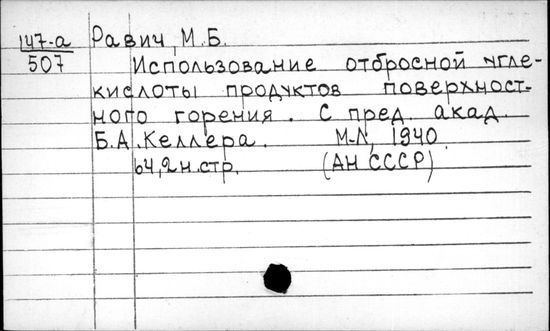 147-а Равич, М.Б.
507
Использование отбросной угле-
кислоты продуктов поверхност-
ного горения. С пред. акад.
Б.А. Келлера. М-Л, 1940.
64, 2 н.стр. (АН СССР)